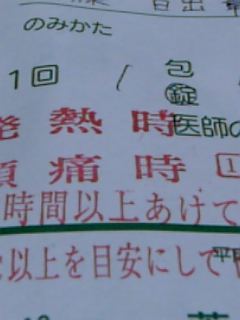 のみかた
1回 / 包
錠
発熱時 医師の
頭痛時 1
時間以上あけて
以上を目安にして